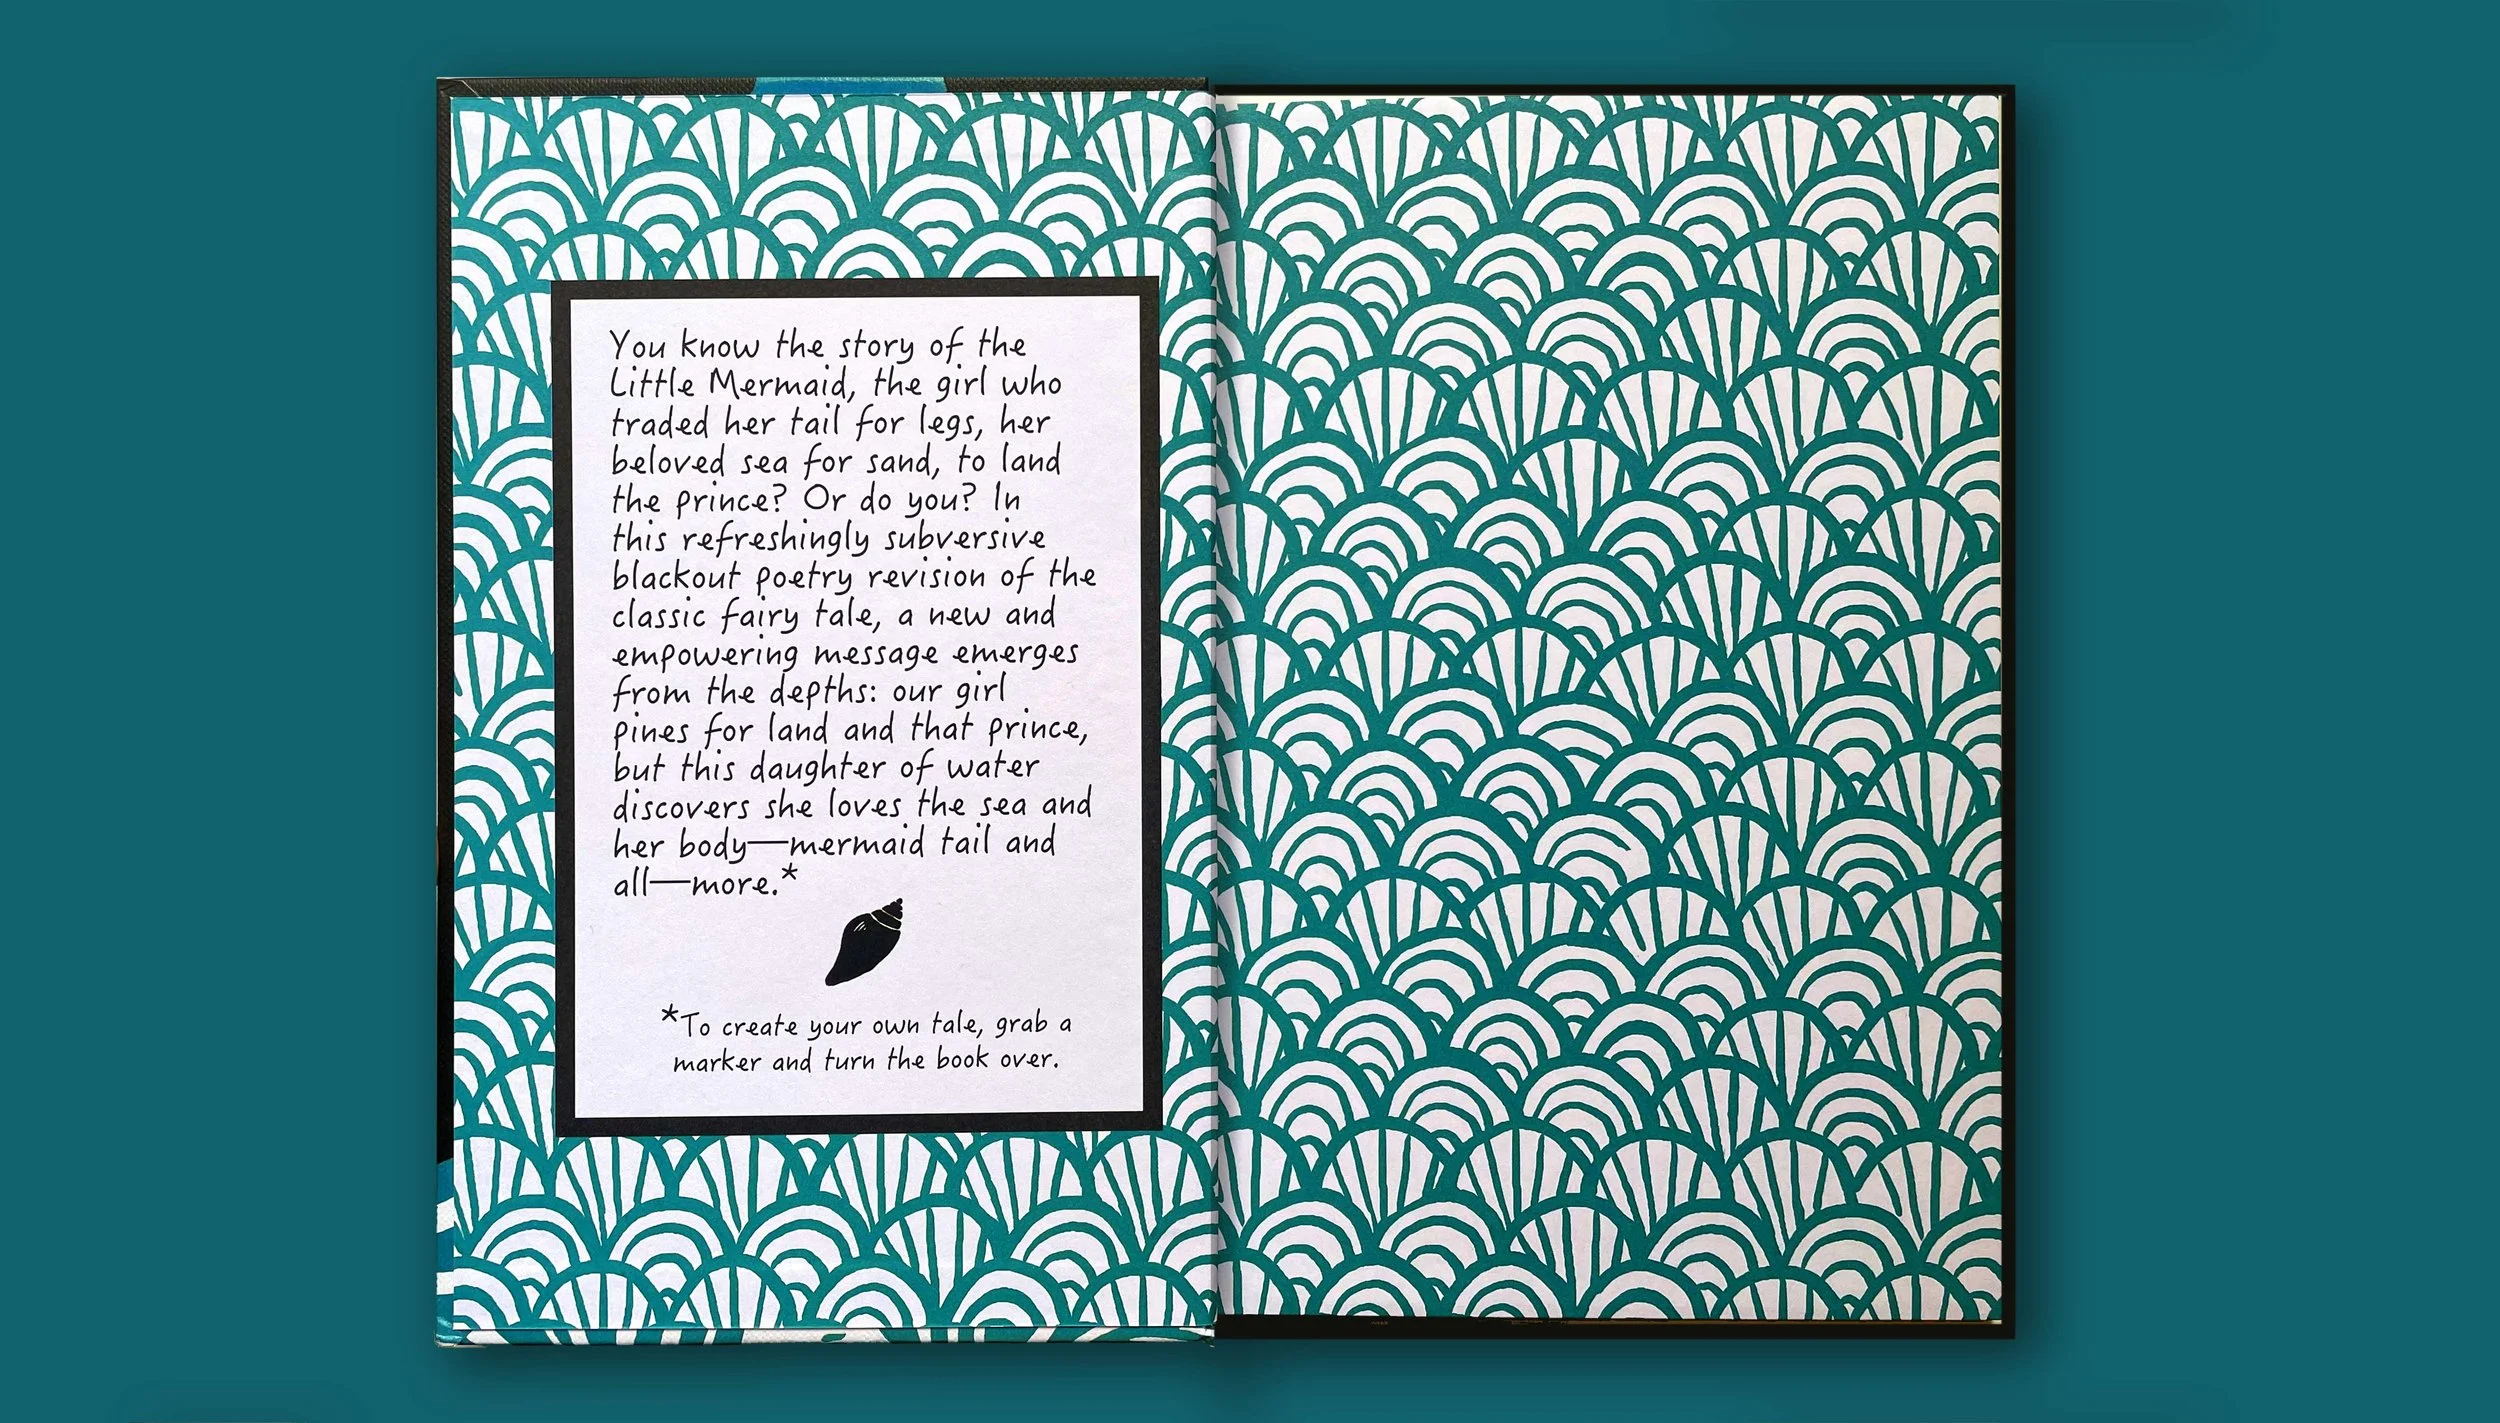 You know the story of the
Little Mermaid, the girl who
traded her tail for legs, her
beloved sea for sand, to land
the prince? Or do you? In
this refreshingly subversive
blackout poetry revision of the
classic fairy tale, a new and
empowering message emerges
from the depths: our girl
pines for land and that prince,
but this daughter of water
discovers she loves the sea and
her body—mermaid tail and
all—more.*
*To create your own tale, grab a
marker and turn the book over.